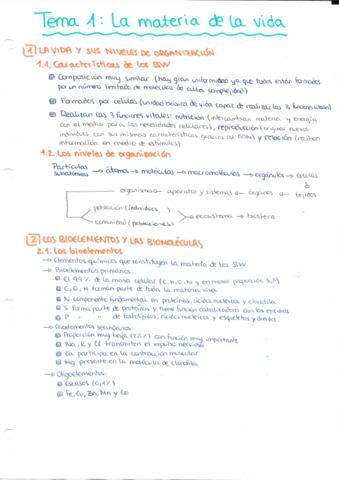 Tema 1: La materia de la vida
1 LA VIDA Y SUS NIVELES DE ORGANIZACIÓN
1.1. Características de los SSVV
Composición muy similar (hay gran uniformidad ya que todos están formados
por un número limitado de moléculas de alta complejidad)
Formados por células (unidad básica de vida capaz de realizar las 3 funciones vitales)
Realizan las 3 funciones vitales: nutrición (intercambian materia y energía
con el medio para las necesidades celulares), reproducción (originar nuevos
individuos con sus mismas características gracias al ADN) y relación (reciben
información en medio de estímulos)
1.2. Los niveles de organización
Partículas subatómicas → átomos → moléculas → macromoléculas → orgánulos → células
organismos ← aparatos y sistemas ← órganos ← tejidos
población (individuos)
comunidad (poblaciones)
ecosistema → biosfera
2 LOS BIOELEMENTOS Y LAS BIOMOLÉCULAS
2.1. Los bioelementos
→ Elementos químicos que constituyen la materia de los SSVV
→ Bioelementos primarios:
El 99% de la masa celular (C, H, O, N y en menor proporción S, P)
C, O, H forman parte de toda la materia viva
N componente fundamental en proteínas, ácidos nucleicos y clorofila
S forma parte de proteínas y tiene función catalizadora con las enzimas
P " " de fosfolípidos, ácidos nucleicos y esqueletos y dientes.
→ Bioelementos secundarios:
Proporción muy baja función muy importante
Na, K y Cl transmiten el impulso nervioso
Ca participa en la contracción muscular
Mg presente en la molécula de clorofila
→ Oligoelementos:
Escasos (0,1%)
Fe, Cu, Zn, Mn y Co